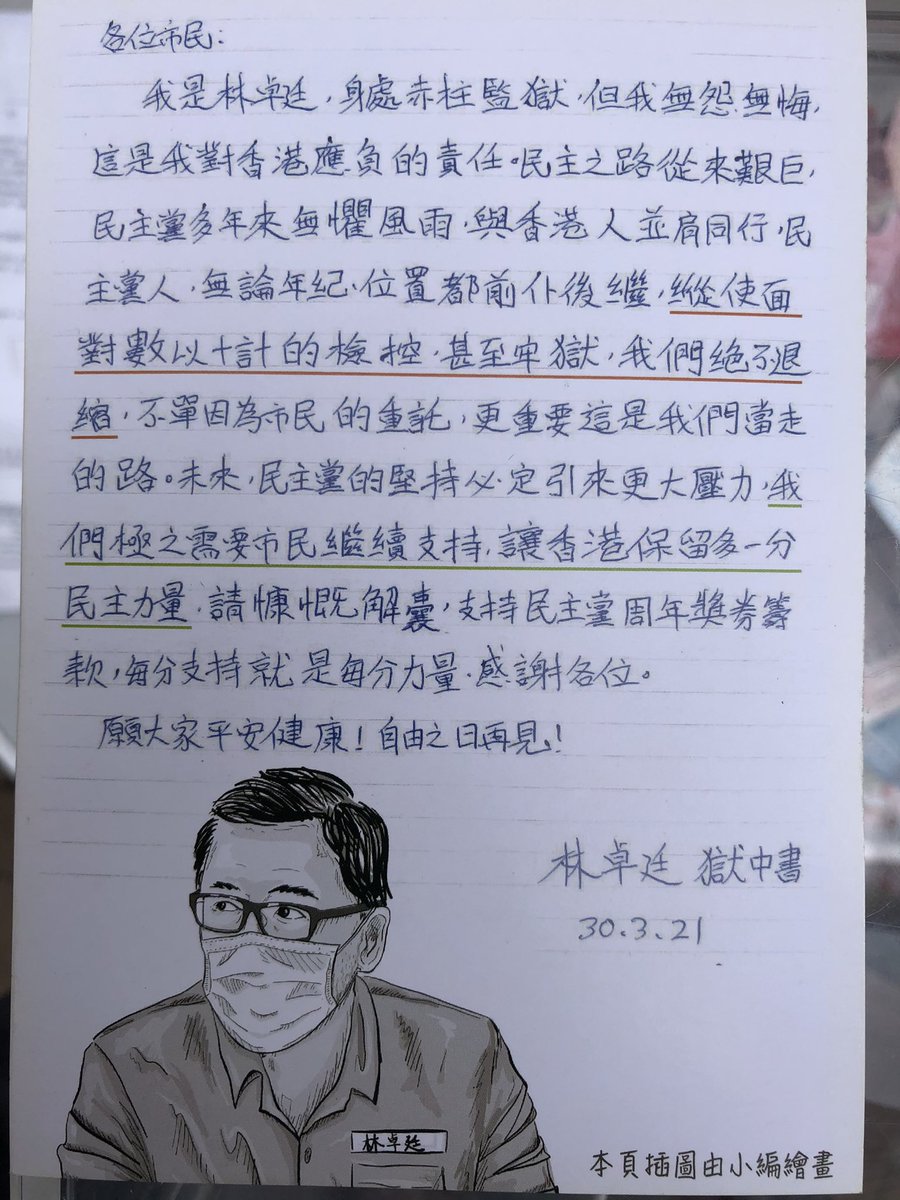 各位市民：
我是林卓廷，身處赤柱監獄，但我無怨無悔，
這是我對香港應負的責任。民主之路從來艱巨，
民主黨多年來無懼風雨，與香港人並肩同行，民
主黨人，無論年紀、位置都前仆後繼，縱使面
對數以十計的檢控，甚至牢獄，我們絕不退
縮，不單因為市民的重託，更重要這是我們當走
的路。未來，民主黨的堅持必定引來更大壓力，我
們極之需要市民繼續支持，讓香港保留多一分
民主力量，請慷慨解囊，支持民主黨周年獎券籌
款，每分支持就是每分力量，感謝各位。
願大家平安健康！自由之日再見！
林卓廷 獄中書
30.3.21
林卓廷
本頁插圖由小編繪畫